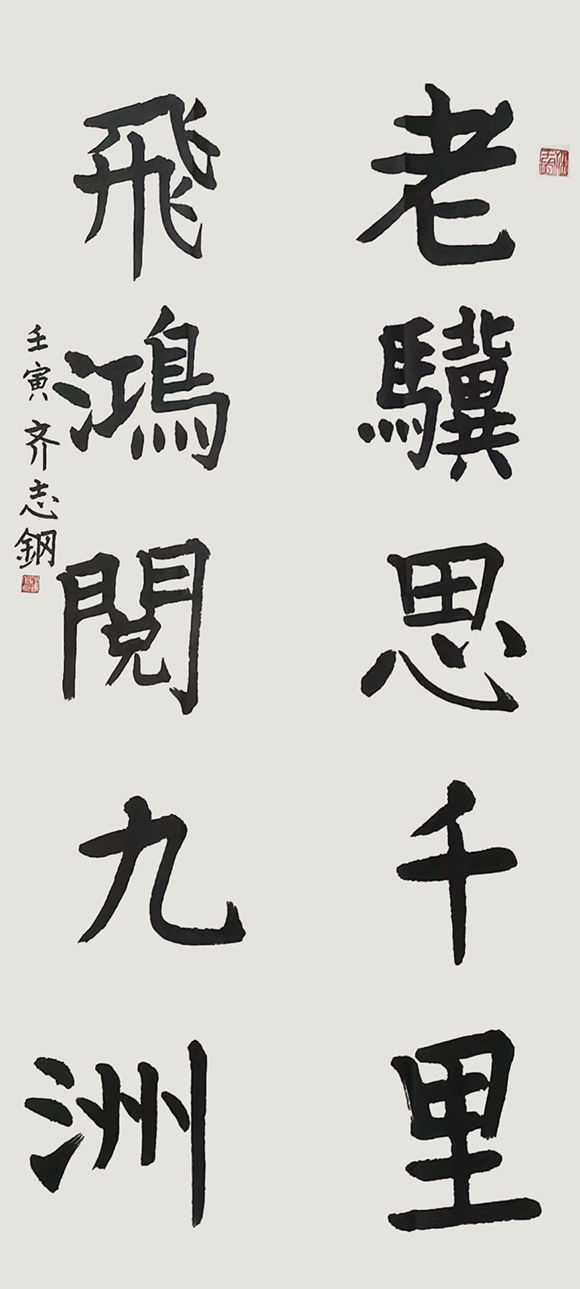 老驥思千里
飛鴻閱九洲
壬寅齐志鋼